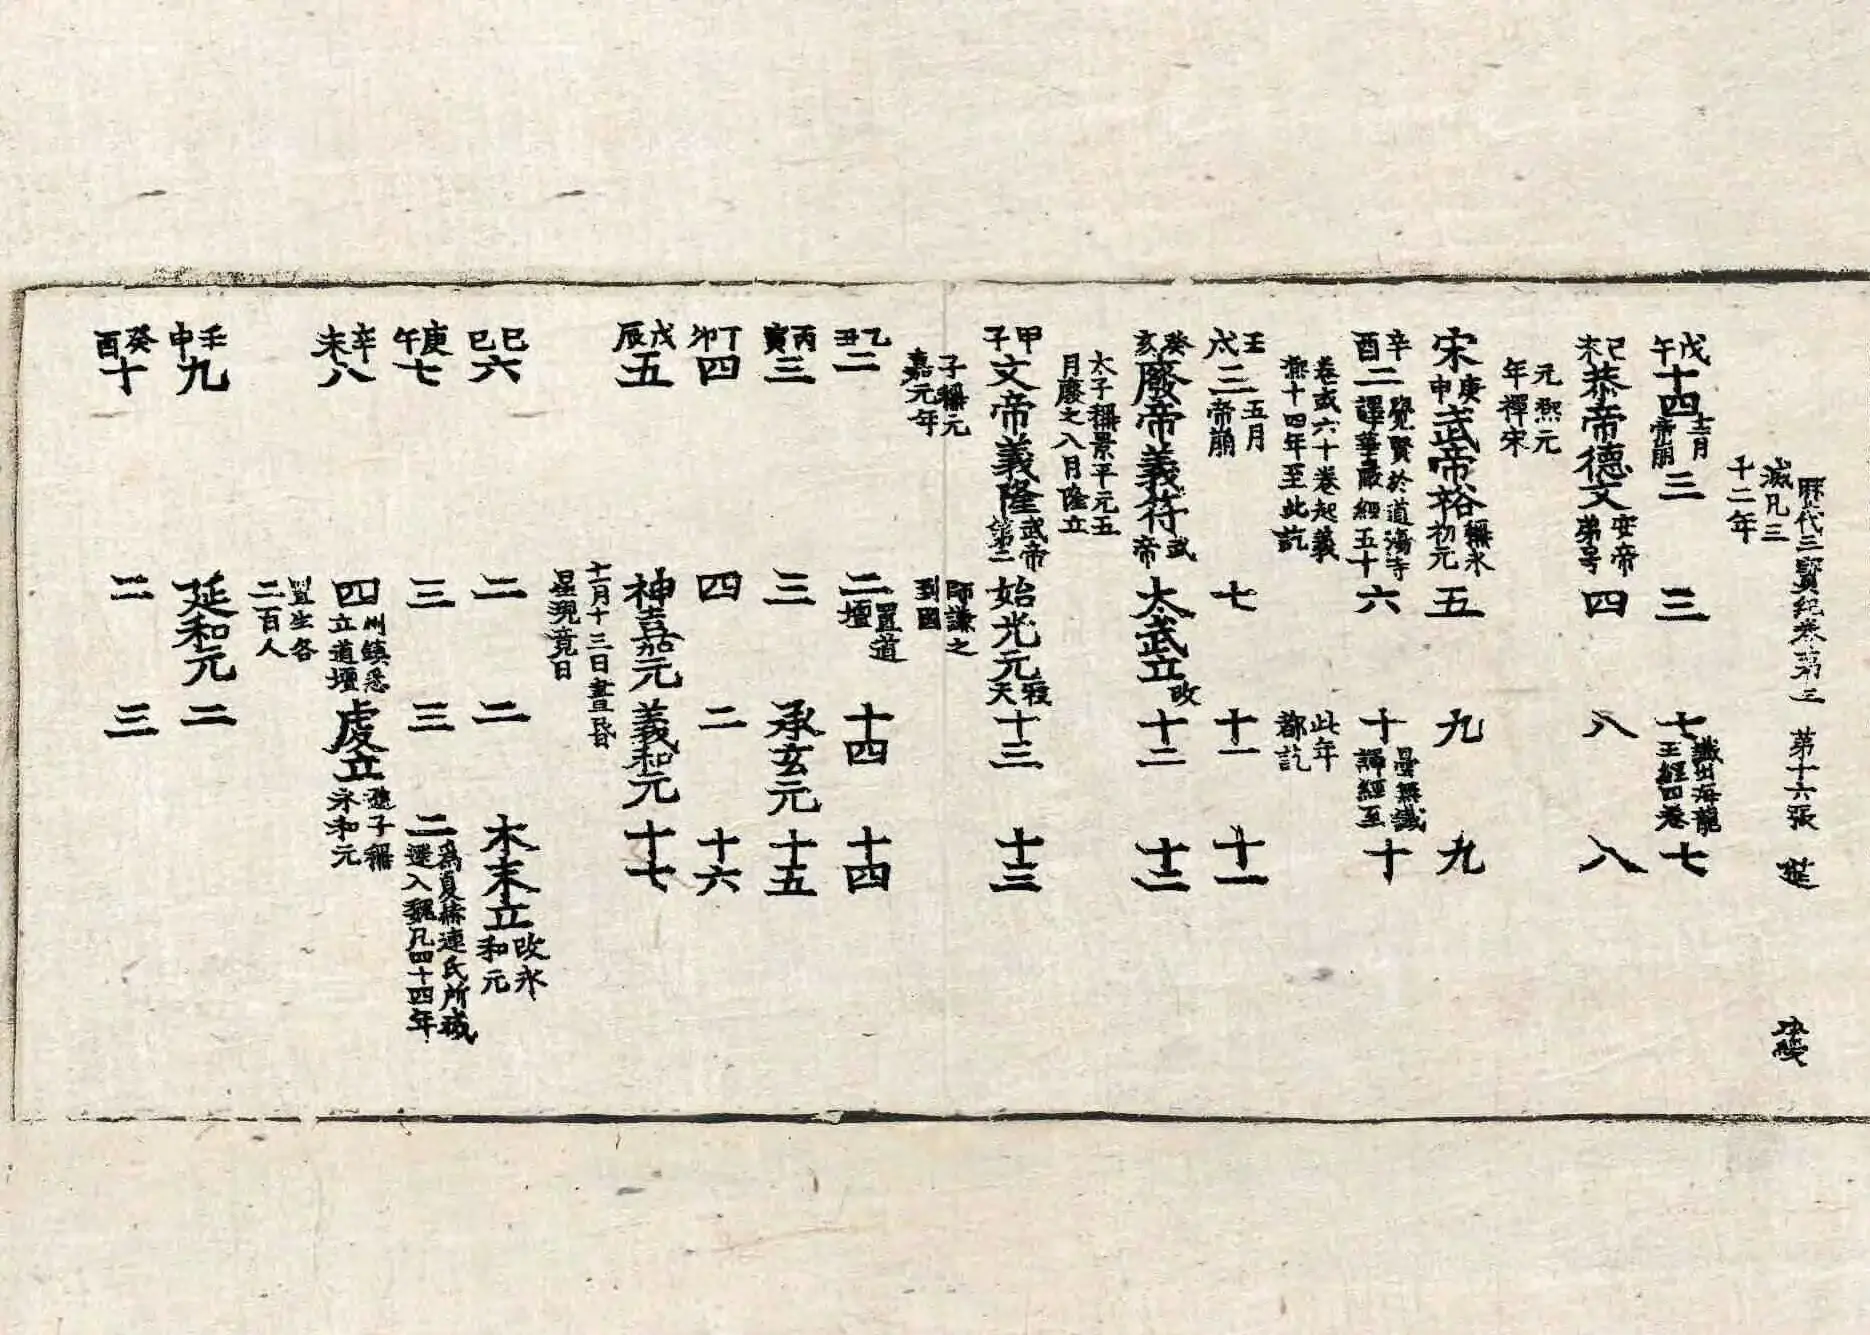 滅凡三
千二年
歷代三寶紀卷第三 第十六張 楚
戊午十四十二月帝崩 三 三 七讖出海龍王經四卷 七
己未恭帝德文安帝弟号 四 八 八
元熙元年禪宋
宋庚申武帝裕稱永初元 五 九 九
辛酉二覺賢於道場寺譯華嚴經五十 六 十曇無讖譯經至 十
卷或六十卷起義熙十四年至此訖 此年都訖
壬戌三五月帝崩 七 十一 十一
癸亥廢帝義符武帝 太武立改 十二 十二
太子稱景平元五月廢之八月隆立
甲子文帝義隆武帝第二 始光元寇天 十三 十三
子稱元嘉元年 師謙之到國
乙丑二 二置道壇 十四 十四
丙寅三 三 承玄元 十五
丁卯四 四 二 十六
戊辰五 神嘉元 義和元 十七
十一月十三日晝昏星現竟日
己巳六 二 二 木末立改永和元
庚午七 三 三 二爲夏赫連氏所滅還入魏凡四十四年
辛未八 四州鎮悉立道壇 虔立遜子稱永和元
置生各二百人
壬申九 延和元 二
癸酉十 二 三